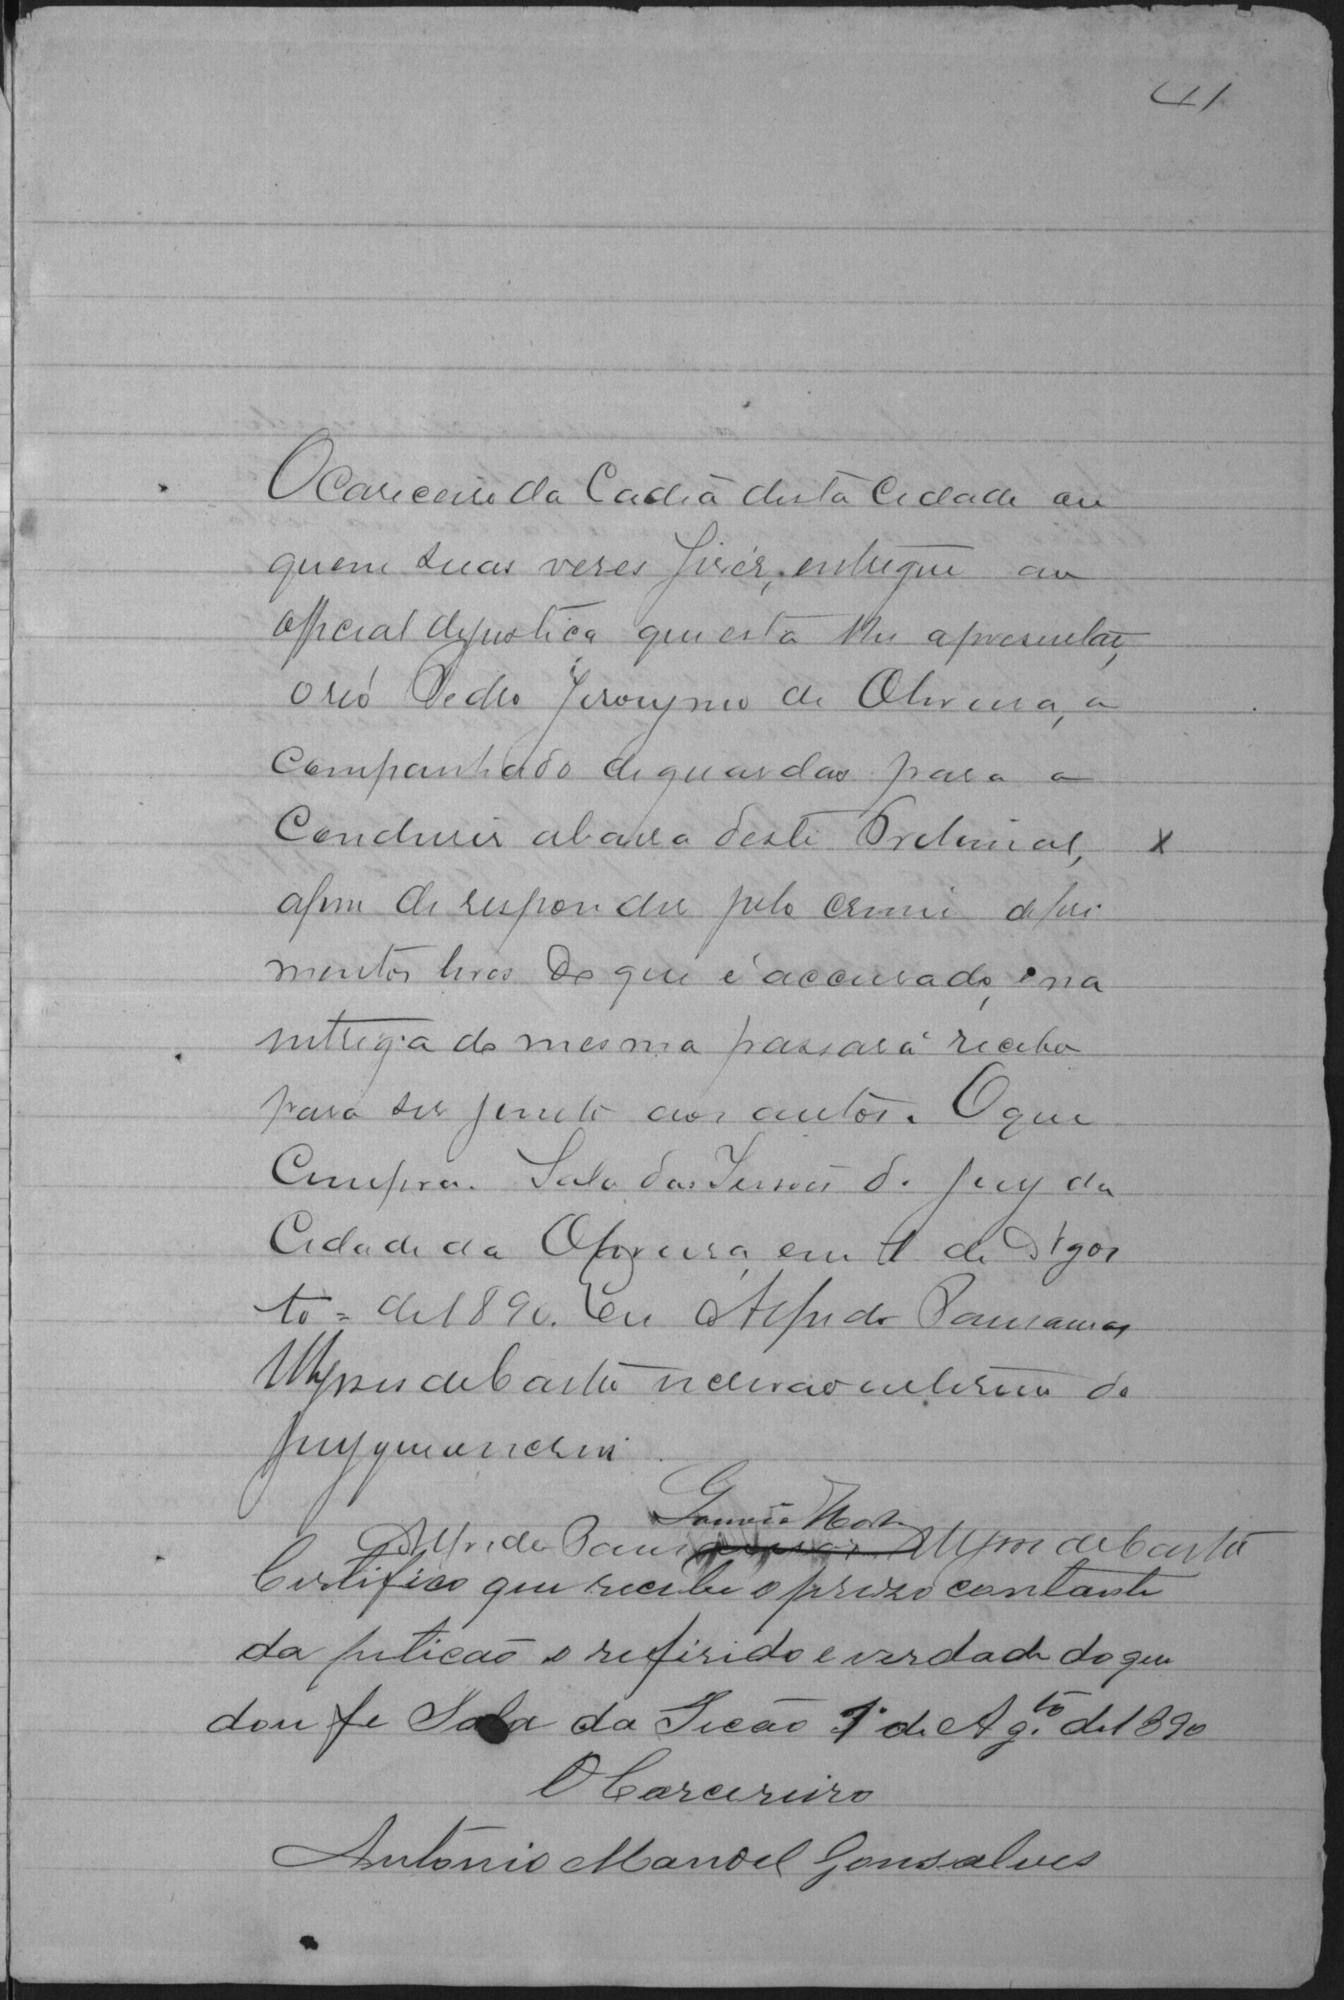 41
O Carcereiro da Cadêa desta Cidade ou
quem suas veses fiser, entregue ao
official de justiça que esta lhe apresentar,
o réo Pedro Jeronymo de Oliveira, a
companhado de guardas para o
Condusir a barra deste Tribunal, x
afim de responder pelo crime de feri
mentos leves de que é accusado, e na
entrega do mesmo passará recibo
para ser junto aos autos. O que
Cumpra. Sala das Sessões do Jury da
Cidade da Oliveira, em 1 de Agos
to = de 1890. Eu Alfredo
de Castro escrivão interino do
Jury que o escrevi
Alfredo de Castro
Certifico que recebi o prezo contante
da peticão o refirido e verdade do que
dou fe Sala da Secão 1º de Ag.to de 1890
O Carcereiro
Antonio Manoel Gonsalves